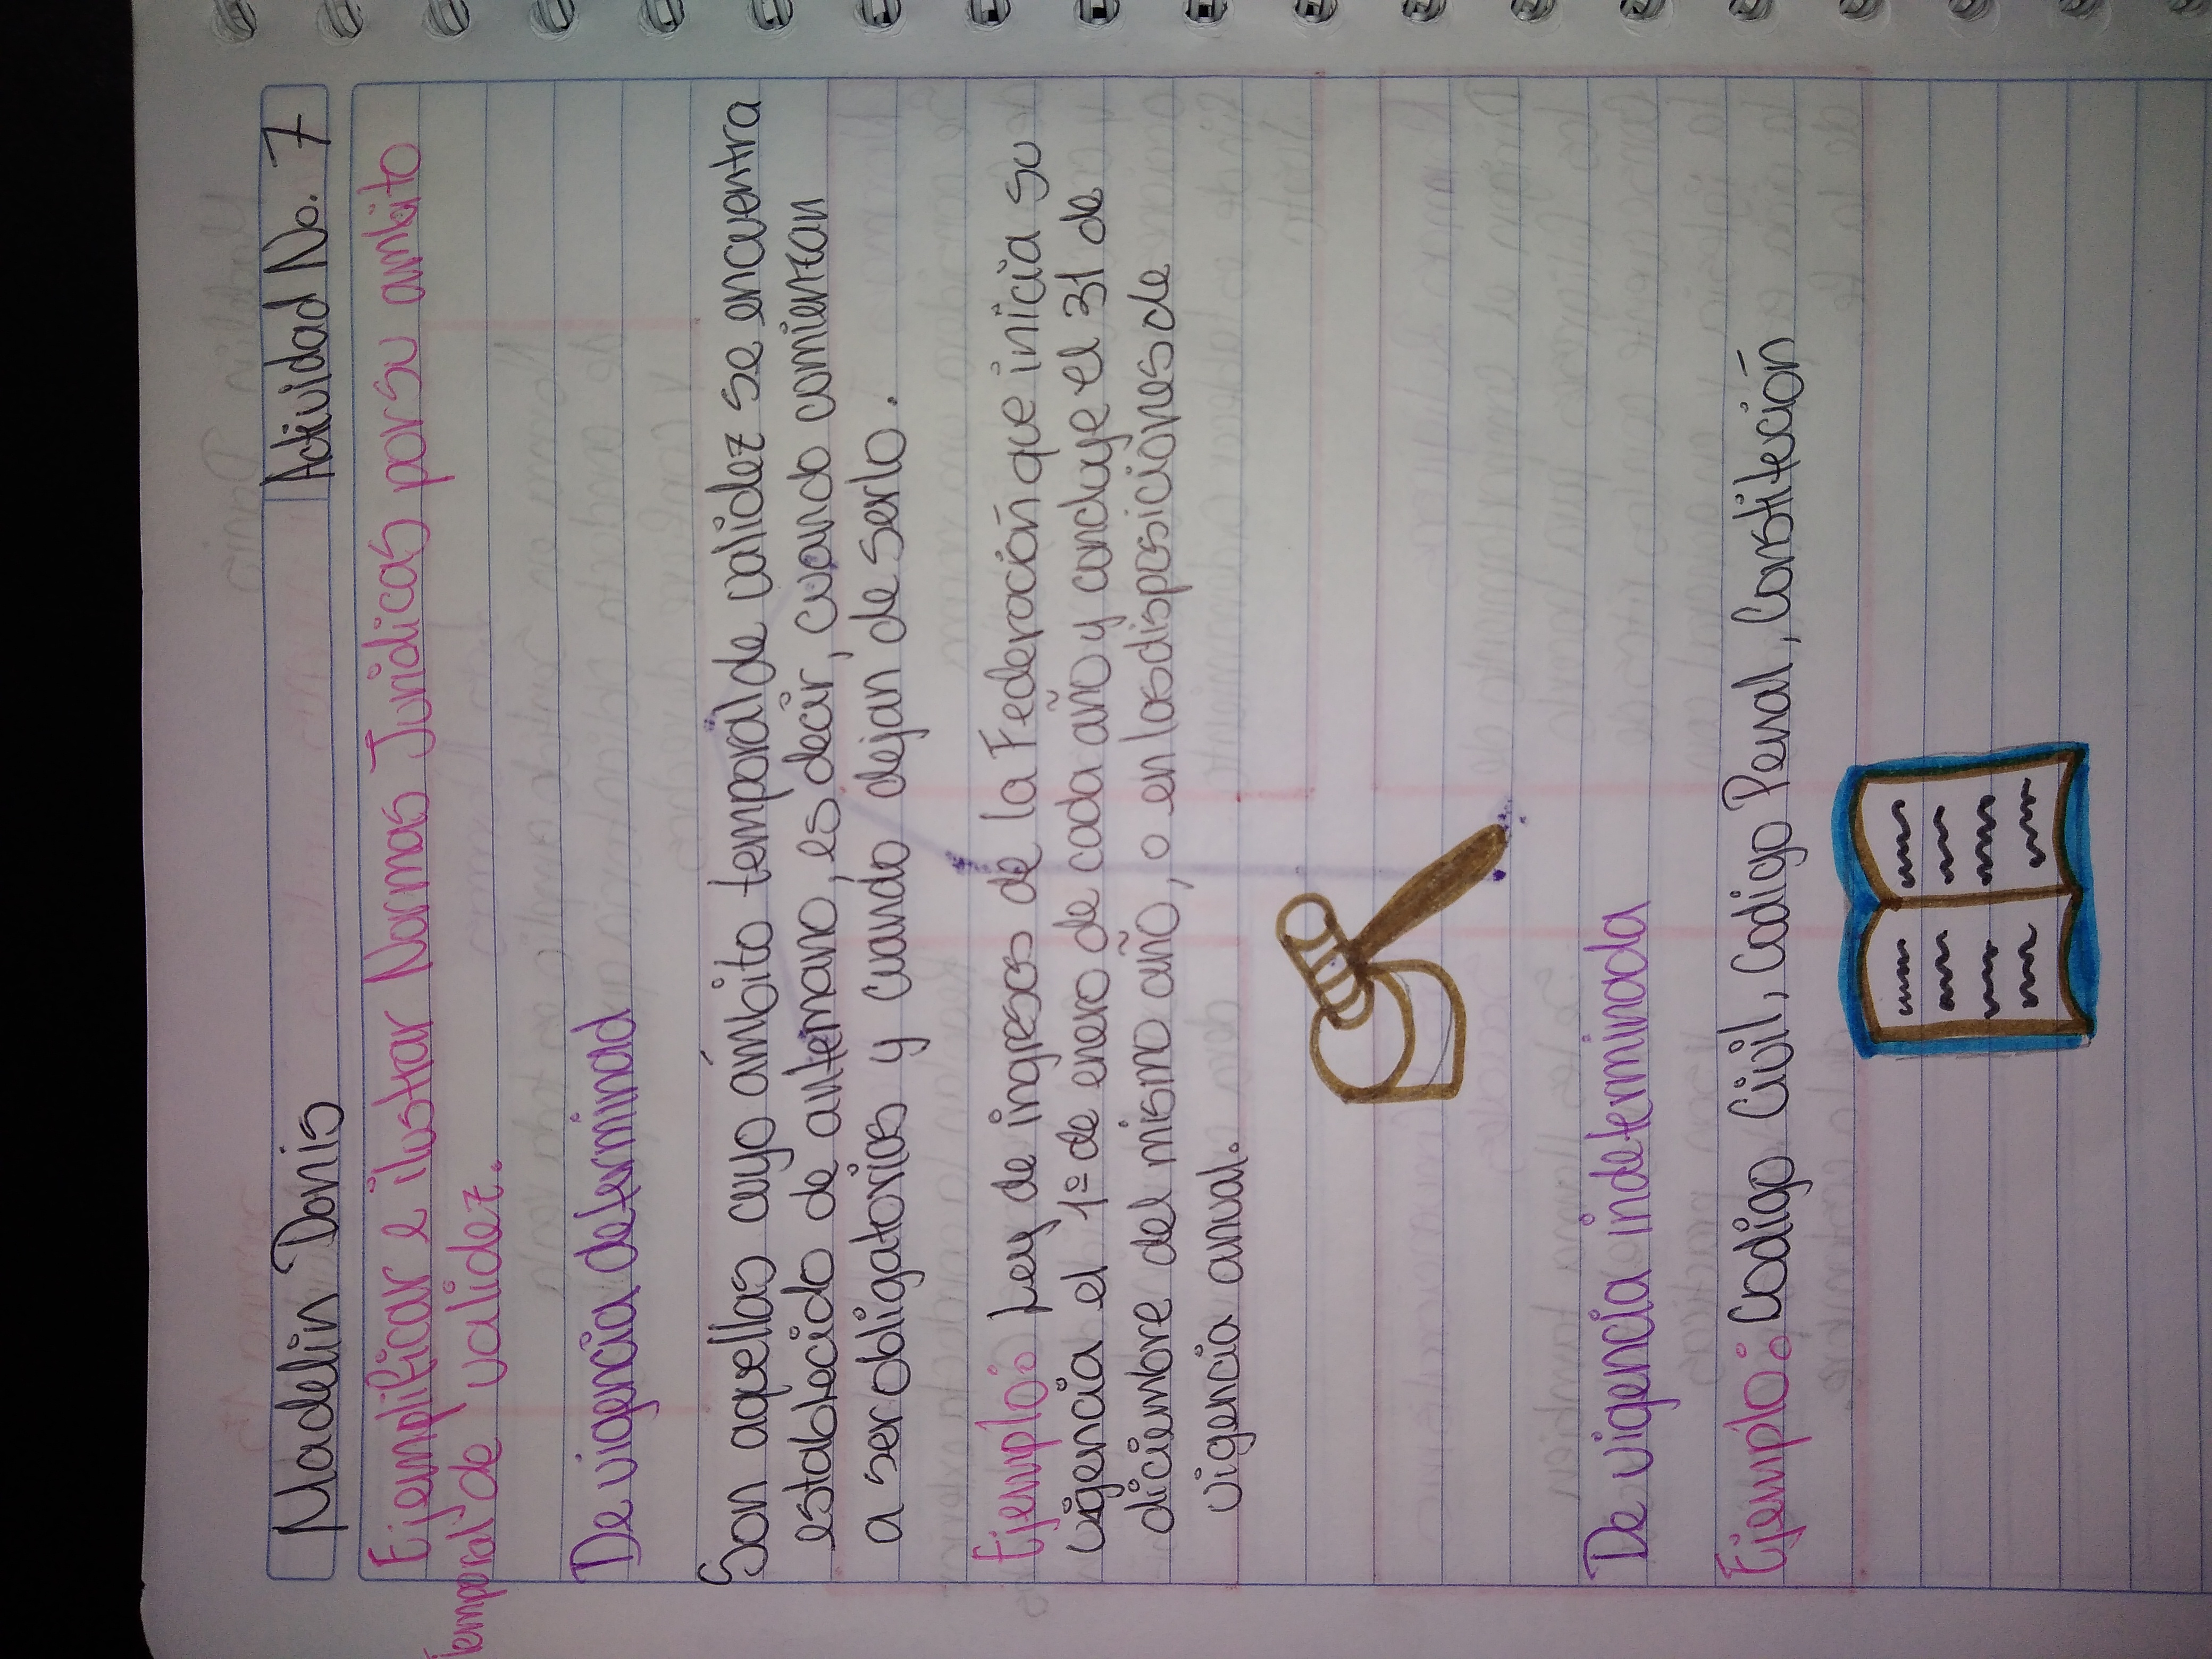 Madelin Donis Actividad No. 7
Ejemplificar e ilustrar Normas Juridicas por su ambito
temporal de validez.
De vigencia determinad
Son aquellas cuyo ámbito temporal de calidez se encuentra
establecido de antemano, es decir, cuando comienzan
a ser obligatorias y cuando dejan de serlo.
Ejemplo: Ley de ingresos de la Federación que inicia su
vigencia el 1º de enero de cada año y concluye el 31 de
diciembre del mismo año, o en las disposiciones de
vigencia anual.
De vigencia indeterminada
Ejemplo: Codigo Civil, Codigo Penal, Constitución